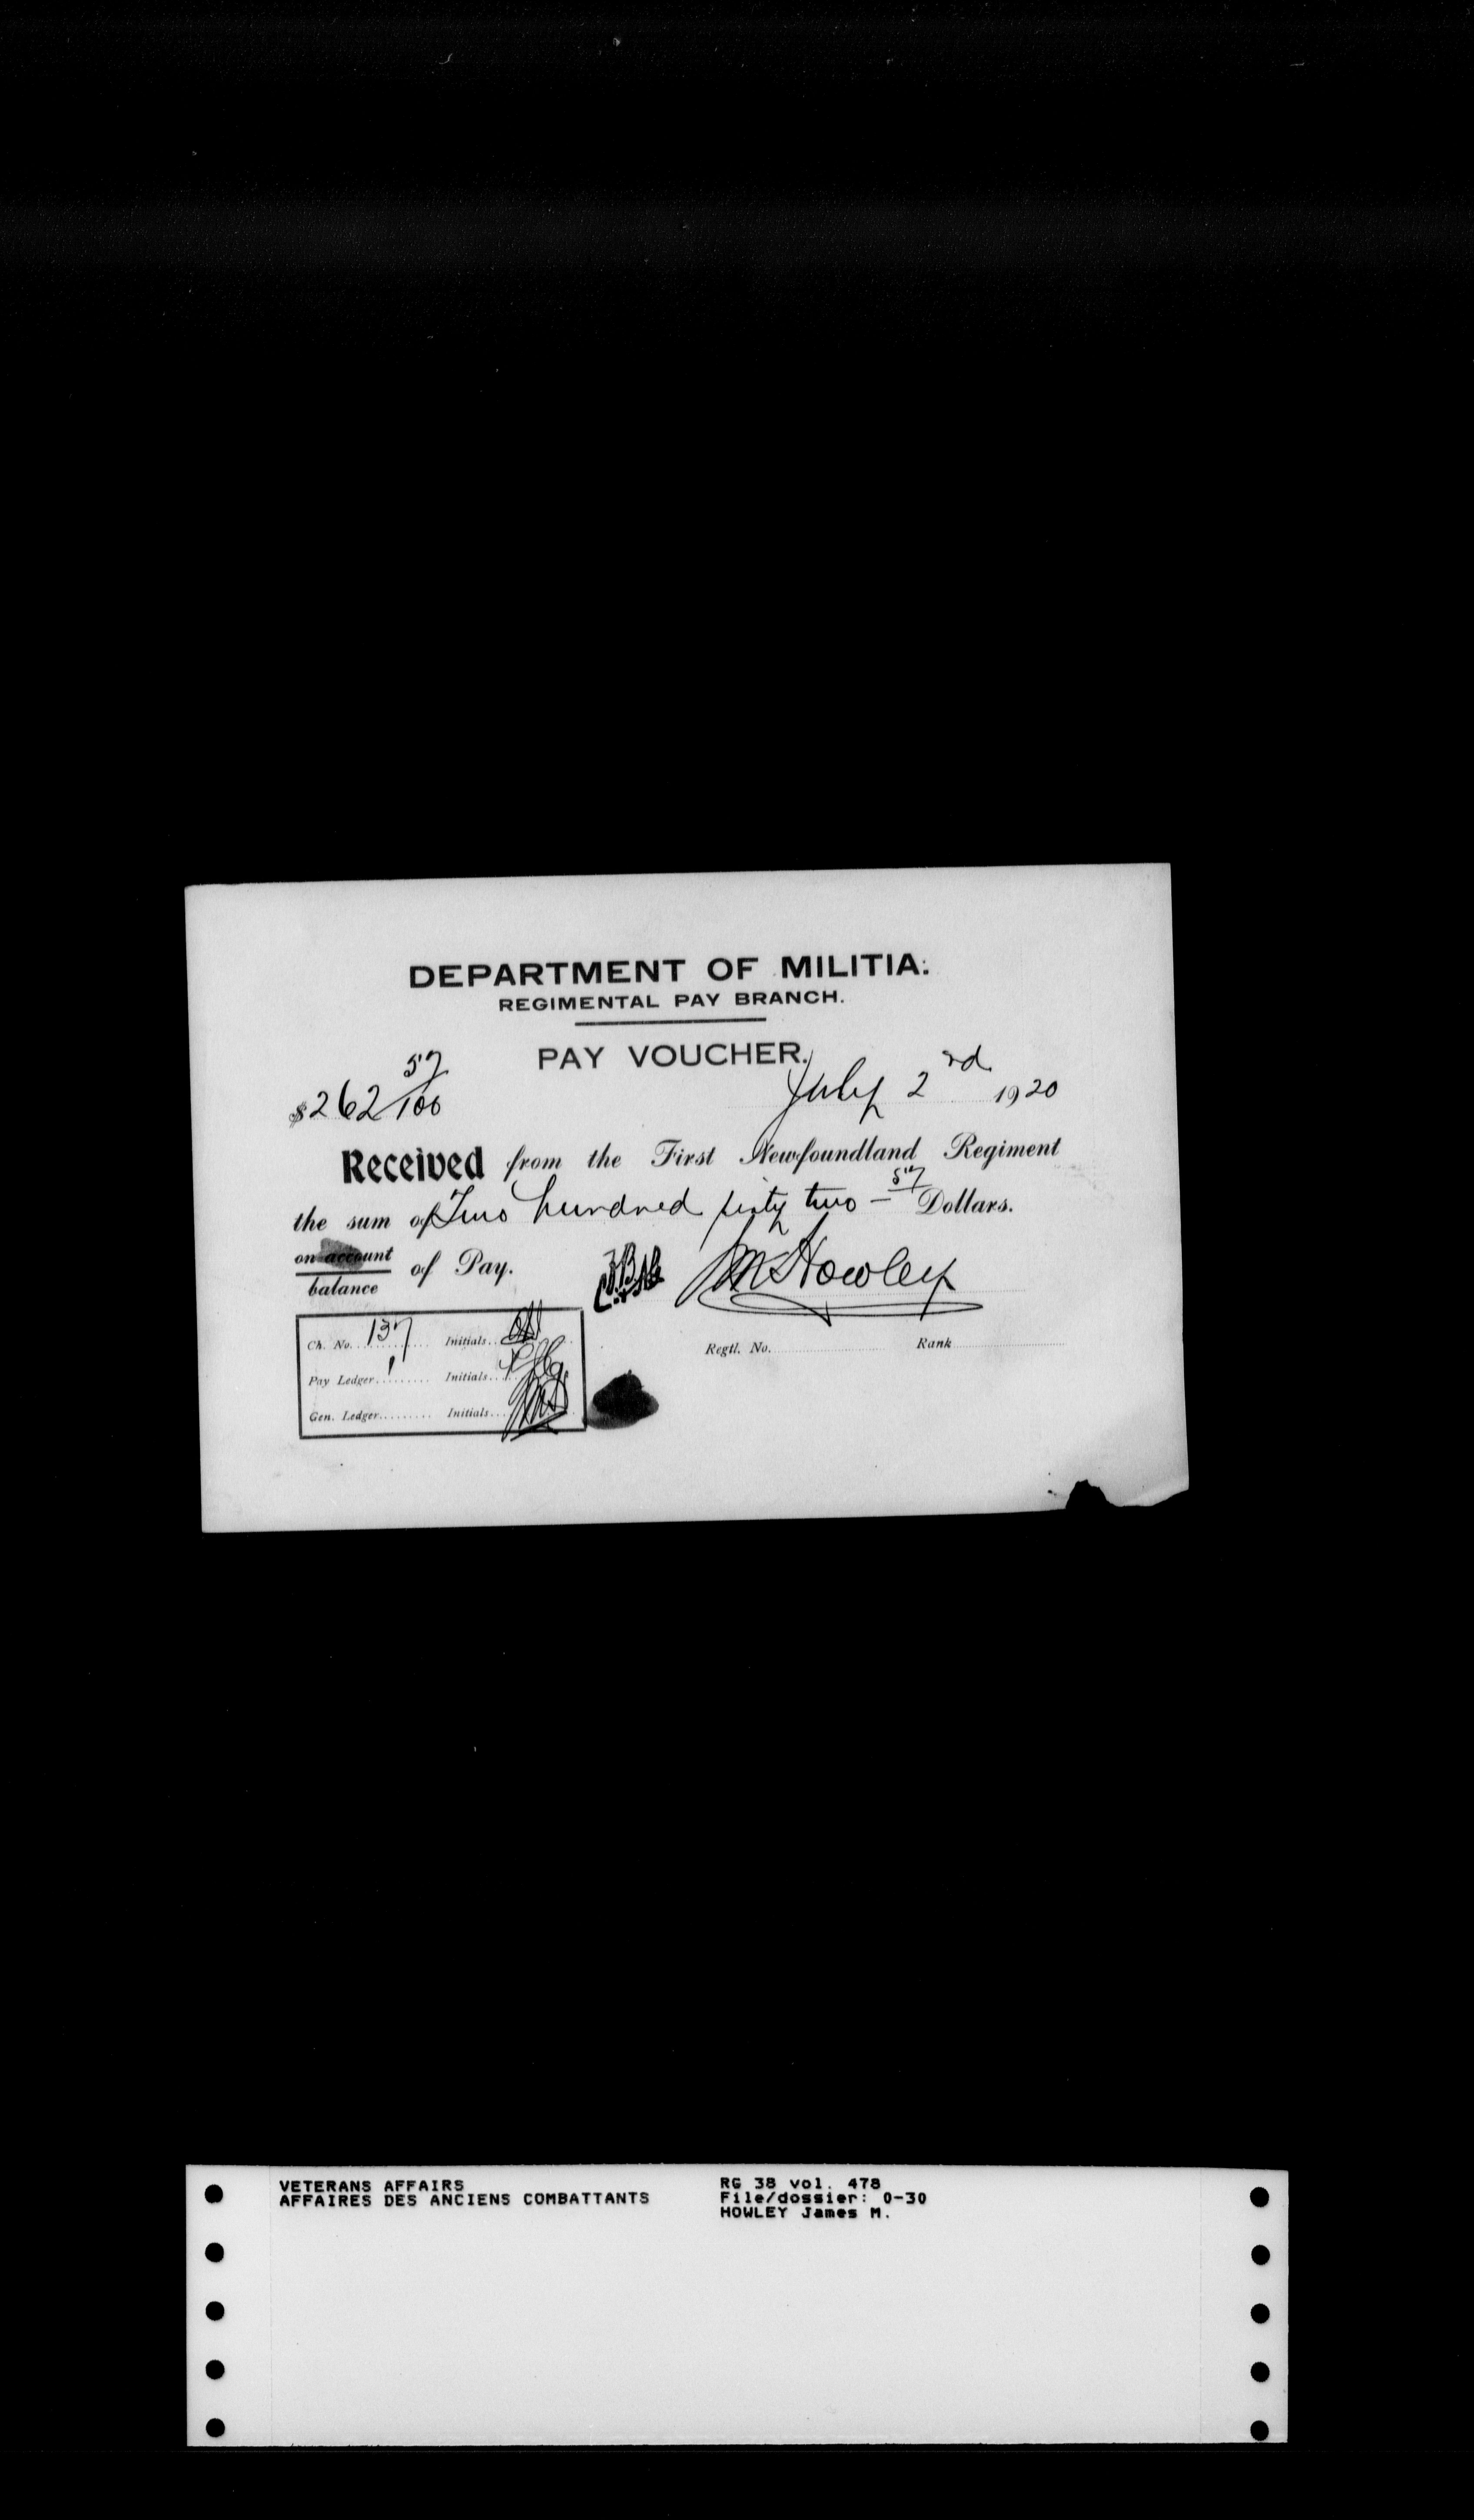 DEPARTMENT OF MILITIA.
REGIMENTAL PAY BRANCH.
PAY VOUCHER.
$262 57/100
July 2rd 1920
Received from the First Newfoundland Regiment
the sum of Two hundred sixty two - 57 Dollars.
on account
balance
of Pay.
JM Howley
Ch. No. 137 Initials
Pay Ledger Initials
Gen. Ledger Initials
Regtl. No. Rank
VETERANS AFFAIRS
AFFAIRES DES ANCIENS COMBATTANTS
RG 38 vol. 478
File/dossier: 0-30
HOWLEY James M.